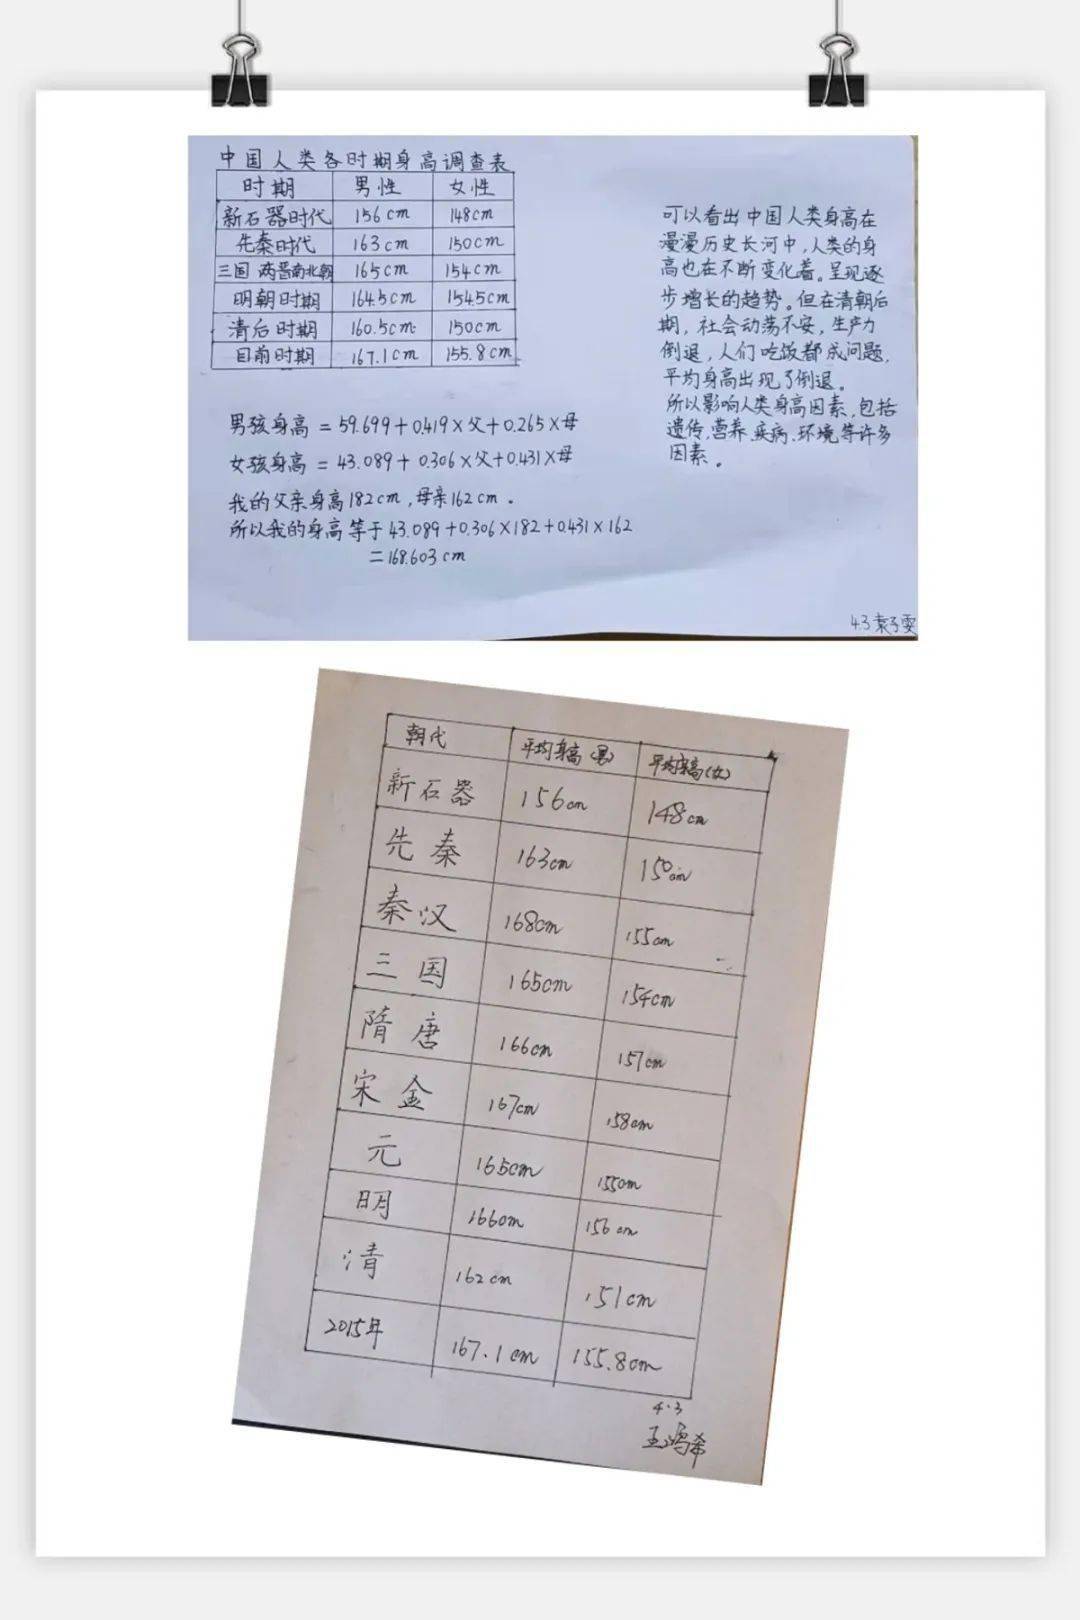 中国人类各时期身高调查表
时期 男性 女性
新石器时代 156cm 148cm
先秦时代 163cm 150cm
三国 两晋南北朝 165cm 154cm
明朝时期 164.5cm 154.5cm
清后时期 160.5cm 150cm
目前时期 167.1cm 155.8cm
男孩身高=59.699+0.419×父+0.265×母
女孩身高=43.089+0.306×父+0.431×母
我的父亲身高182cm,母亲162cm.
所以我的身高等于43.089+0.306×182+0.431×162
=168.603cm
可以看出中国人类身高在
漫漫历史长河中,人类的身
高也在不断变化着。呈现逐
步增长的趋势。但在清朝后
期,社会动荡不安,生产力
倒退,人们吃饭都成问题,
平均身高出现了倒退。
所以影响人类身高因素,包括
遗传、营养、疾病、环境等许多
因素。
4.3 袁子雯
朝代 平均身高(男) 平均身高(女)
新石器 156cm 148cm
先秦 163cm 150cm
秦汉 168cm 155cm
三国 165cm 154cm
隋唐 166cm 157cm
宋金 167cm 158cm
元 165cm 155cm
明 166cm 156cm
清 162cm 151cm
2015年 167.1cm 155.8cm
4.3
王鸿希